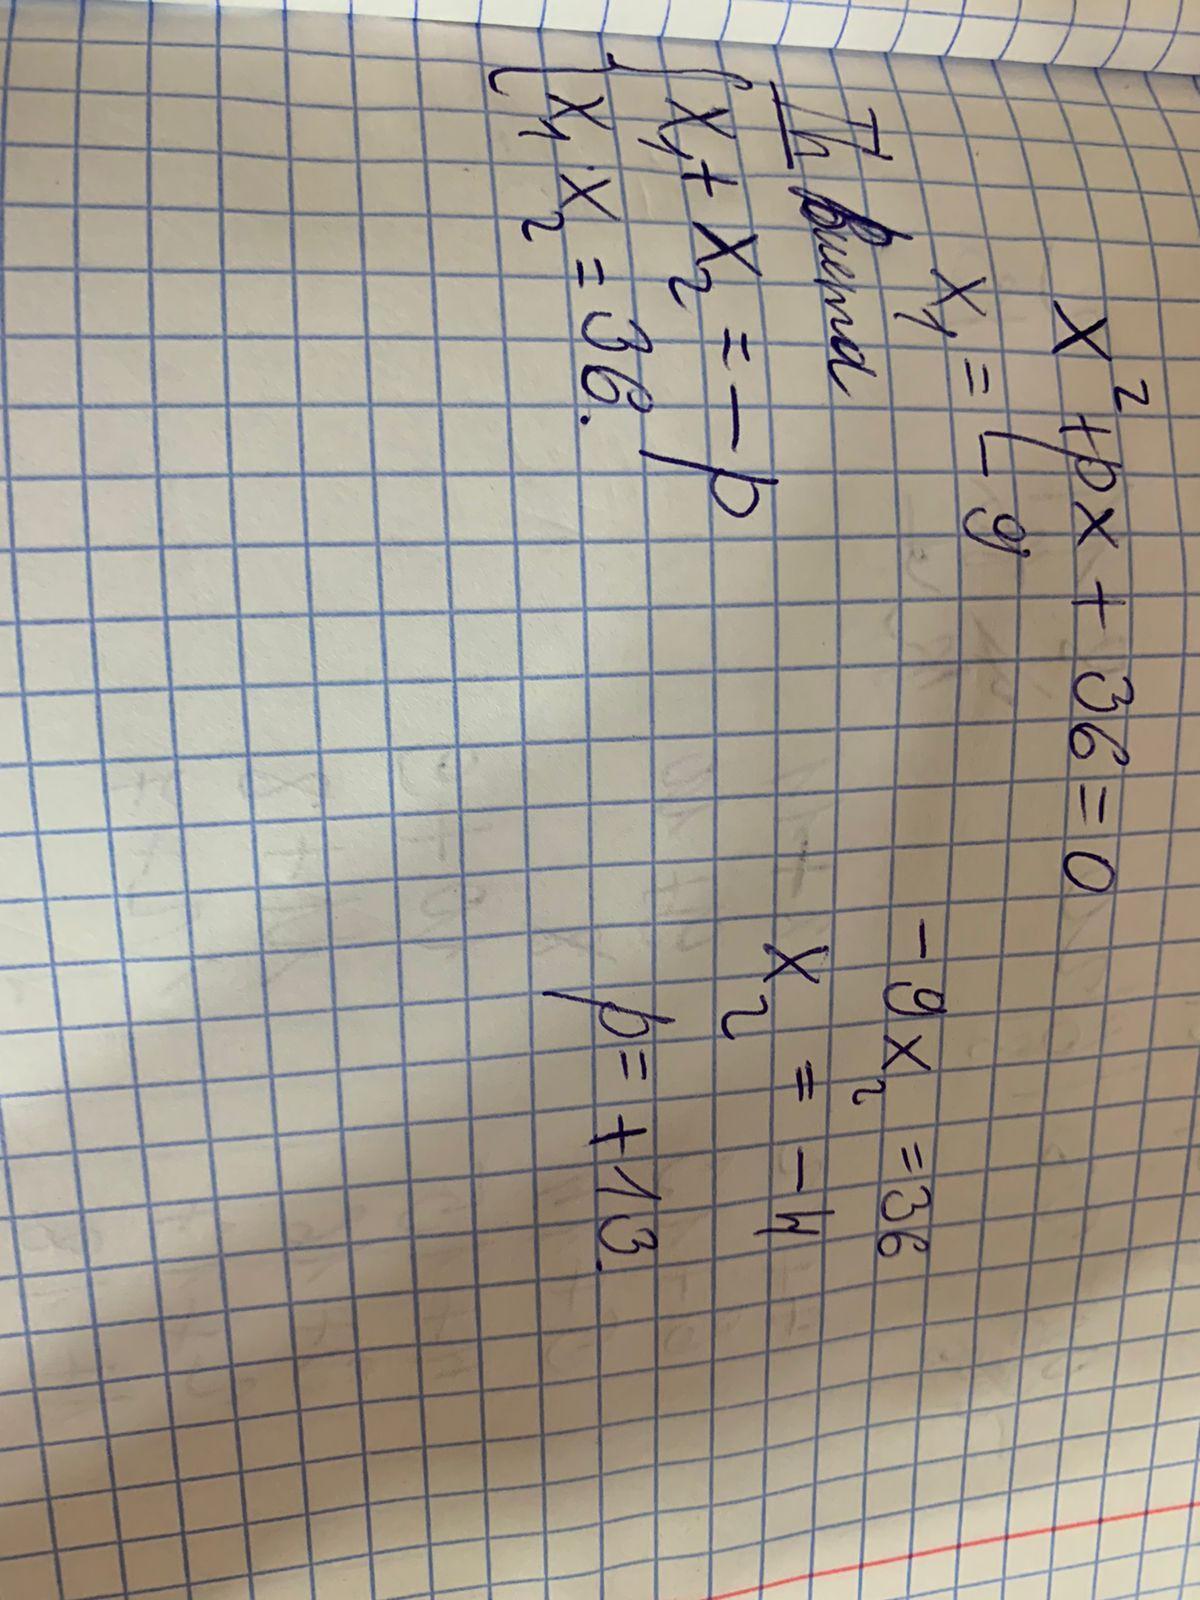 x² + px + 36 = 0
x₁ = -9
Th Виета
{ x₁ + x₂ = -p
x₁ · x₂ = 36.
-9x₂ = 36
x₂ = -4
p = +13.